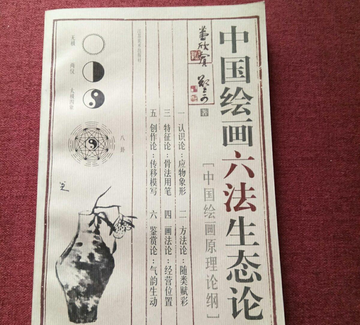 中国绘画六法生态论
[中国绘画原理论纲]
董欣宾 郑奇 著
一 认识论：应物象形
二 方法论：随类赋彩
三 特征论：骨法用笔
四 画法论：经营位置
五 创作论：传移模写
六 鉴赏论：气韵生动
无极
太极
八卦